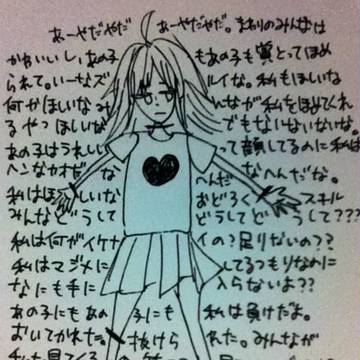 あーやだやだ あーやだやだ。まわりのみんなは
かわいいし、あの子 もあの子も賞とってほめ
られて。いーなズ ルイな。私もほしいな
何かほしいなみ んなが私をほめてくれ
るやつほしいな でもないないないな。
あの子はうれしい って顔してるのに私は
ヘンなカオだ な へんだ なへんだな。
私はほ しいな おどろく スキル
みんなどうして どうしてどうして???
私は何がイケナ イの?足りないの??
私はマジメに してるつもりなのに
なにも手に 入らないよ??
あの子にもあの 子にも 私は負けだよ。
おいてかれた。 抜けら れた。みんなが